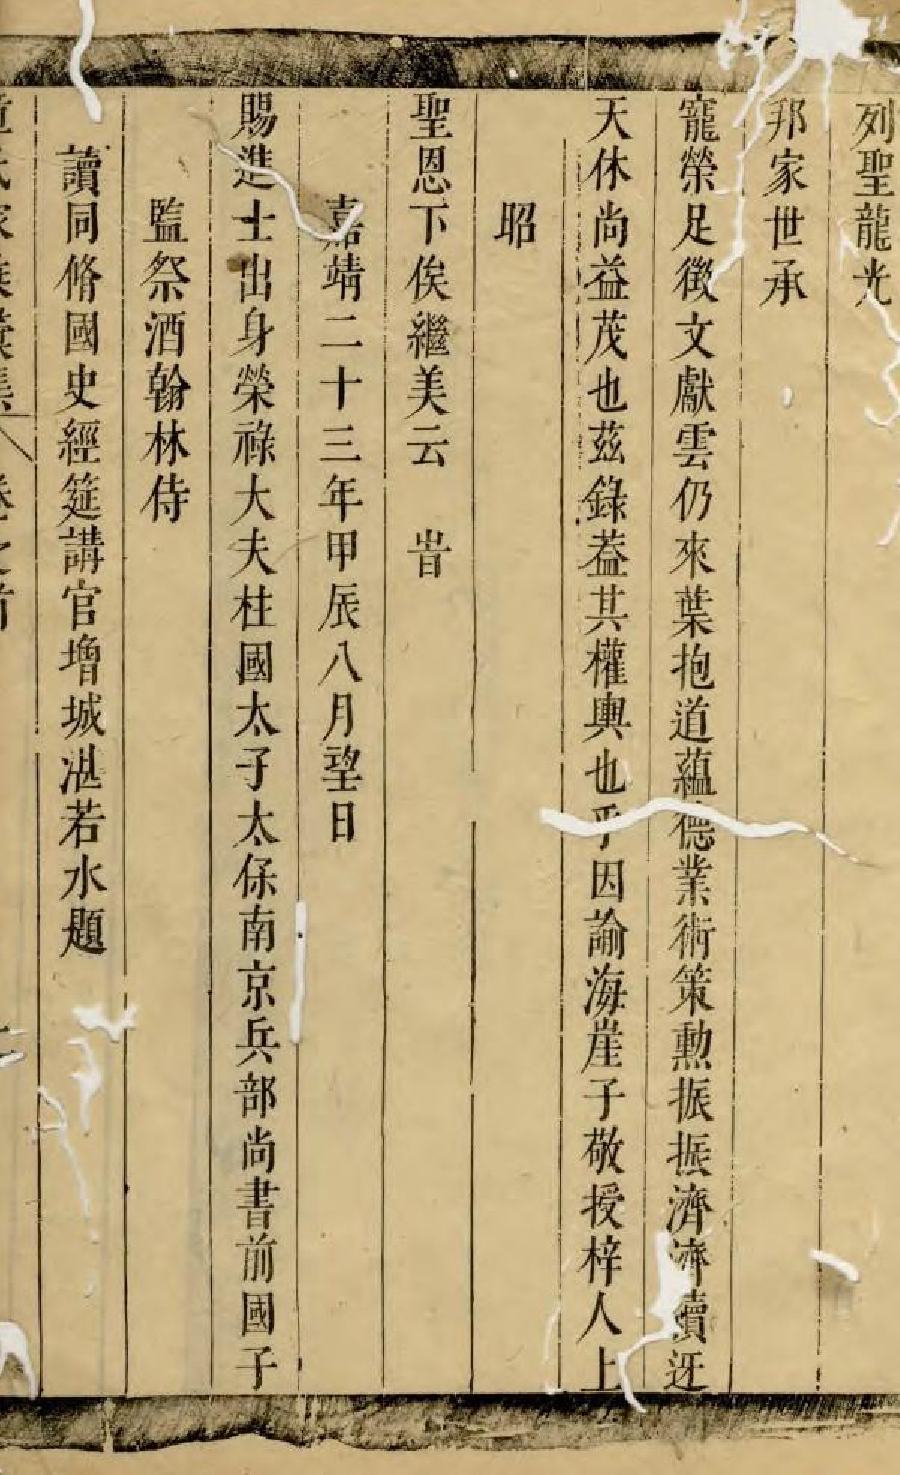 列聖龍光
邦家世承
寵榮足徴文獻雲仍來葉抱道蘊德業術策勲振振濟濟續迓
天休尚益茂也茲錄葢其權輿也乎因諭海崖子敬授梓人上
昭
聖恩下俟繼美云 旹
嘉靖二十三年甲辰八月望日
賜進士出身榮祿大夫柱國太子太保南京兵部尚書前國子
監祭酒翰林侍
讀同脩國史經筵講官增城湛若水題